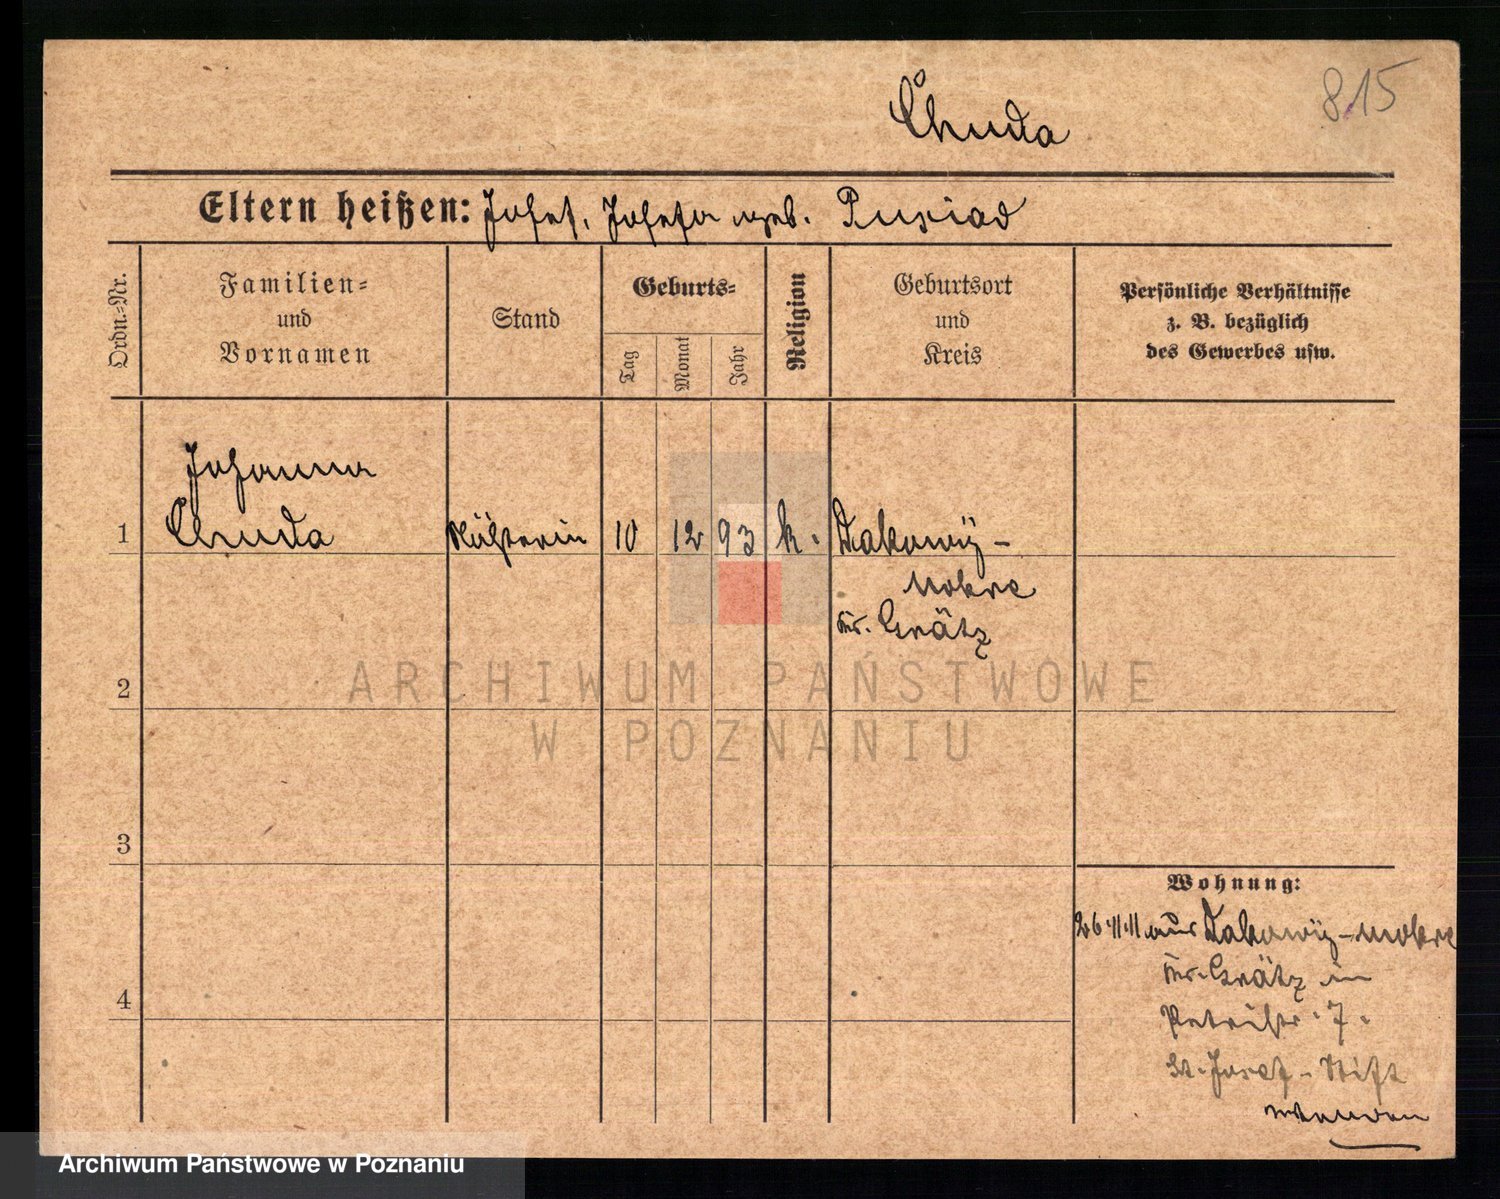 Chuda
815
Eltern heißen: Josef, Josefa geb. Pusiad
Ordn.-Nr.
Familien-
und
Vornamen
Stand
Geburts-
Tag
Monat
Jahr
Religion
Geburtsort
und
Kreis
Persönliche Verhältnisse
z. B. bezüglich
des Gewerbes usw.
Johanna
1 Chuda 10 12 93 k. Dakowÿ-
Mokre
Kr. Grätz
ARCHIWUM PAŃSTWOWE
2
W POZNANIU
3
Wohnung:
26.11.11 aus Dakowÿ-Mokre
Kr. Grätz in
4
Petristr. 7.
St. Josef-Stift
Archiwum Państwowe w Poznaniu